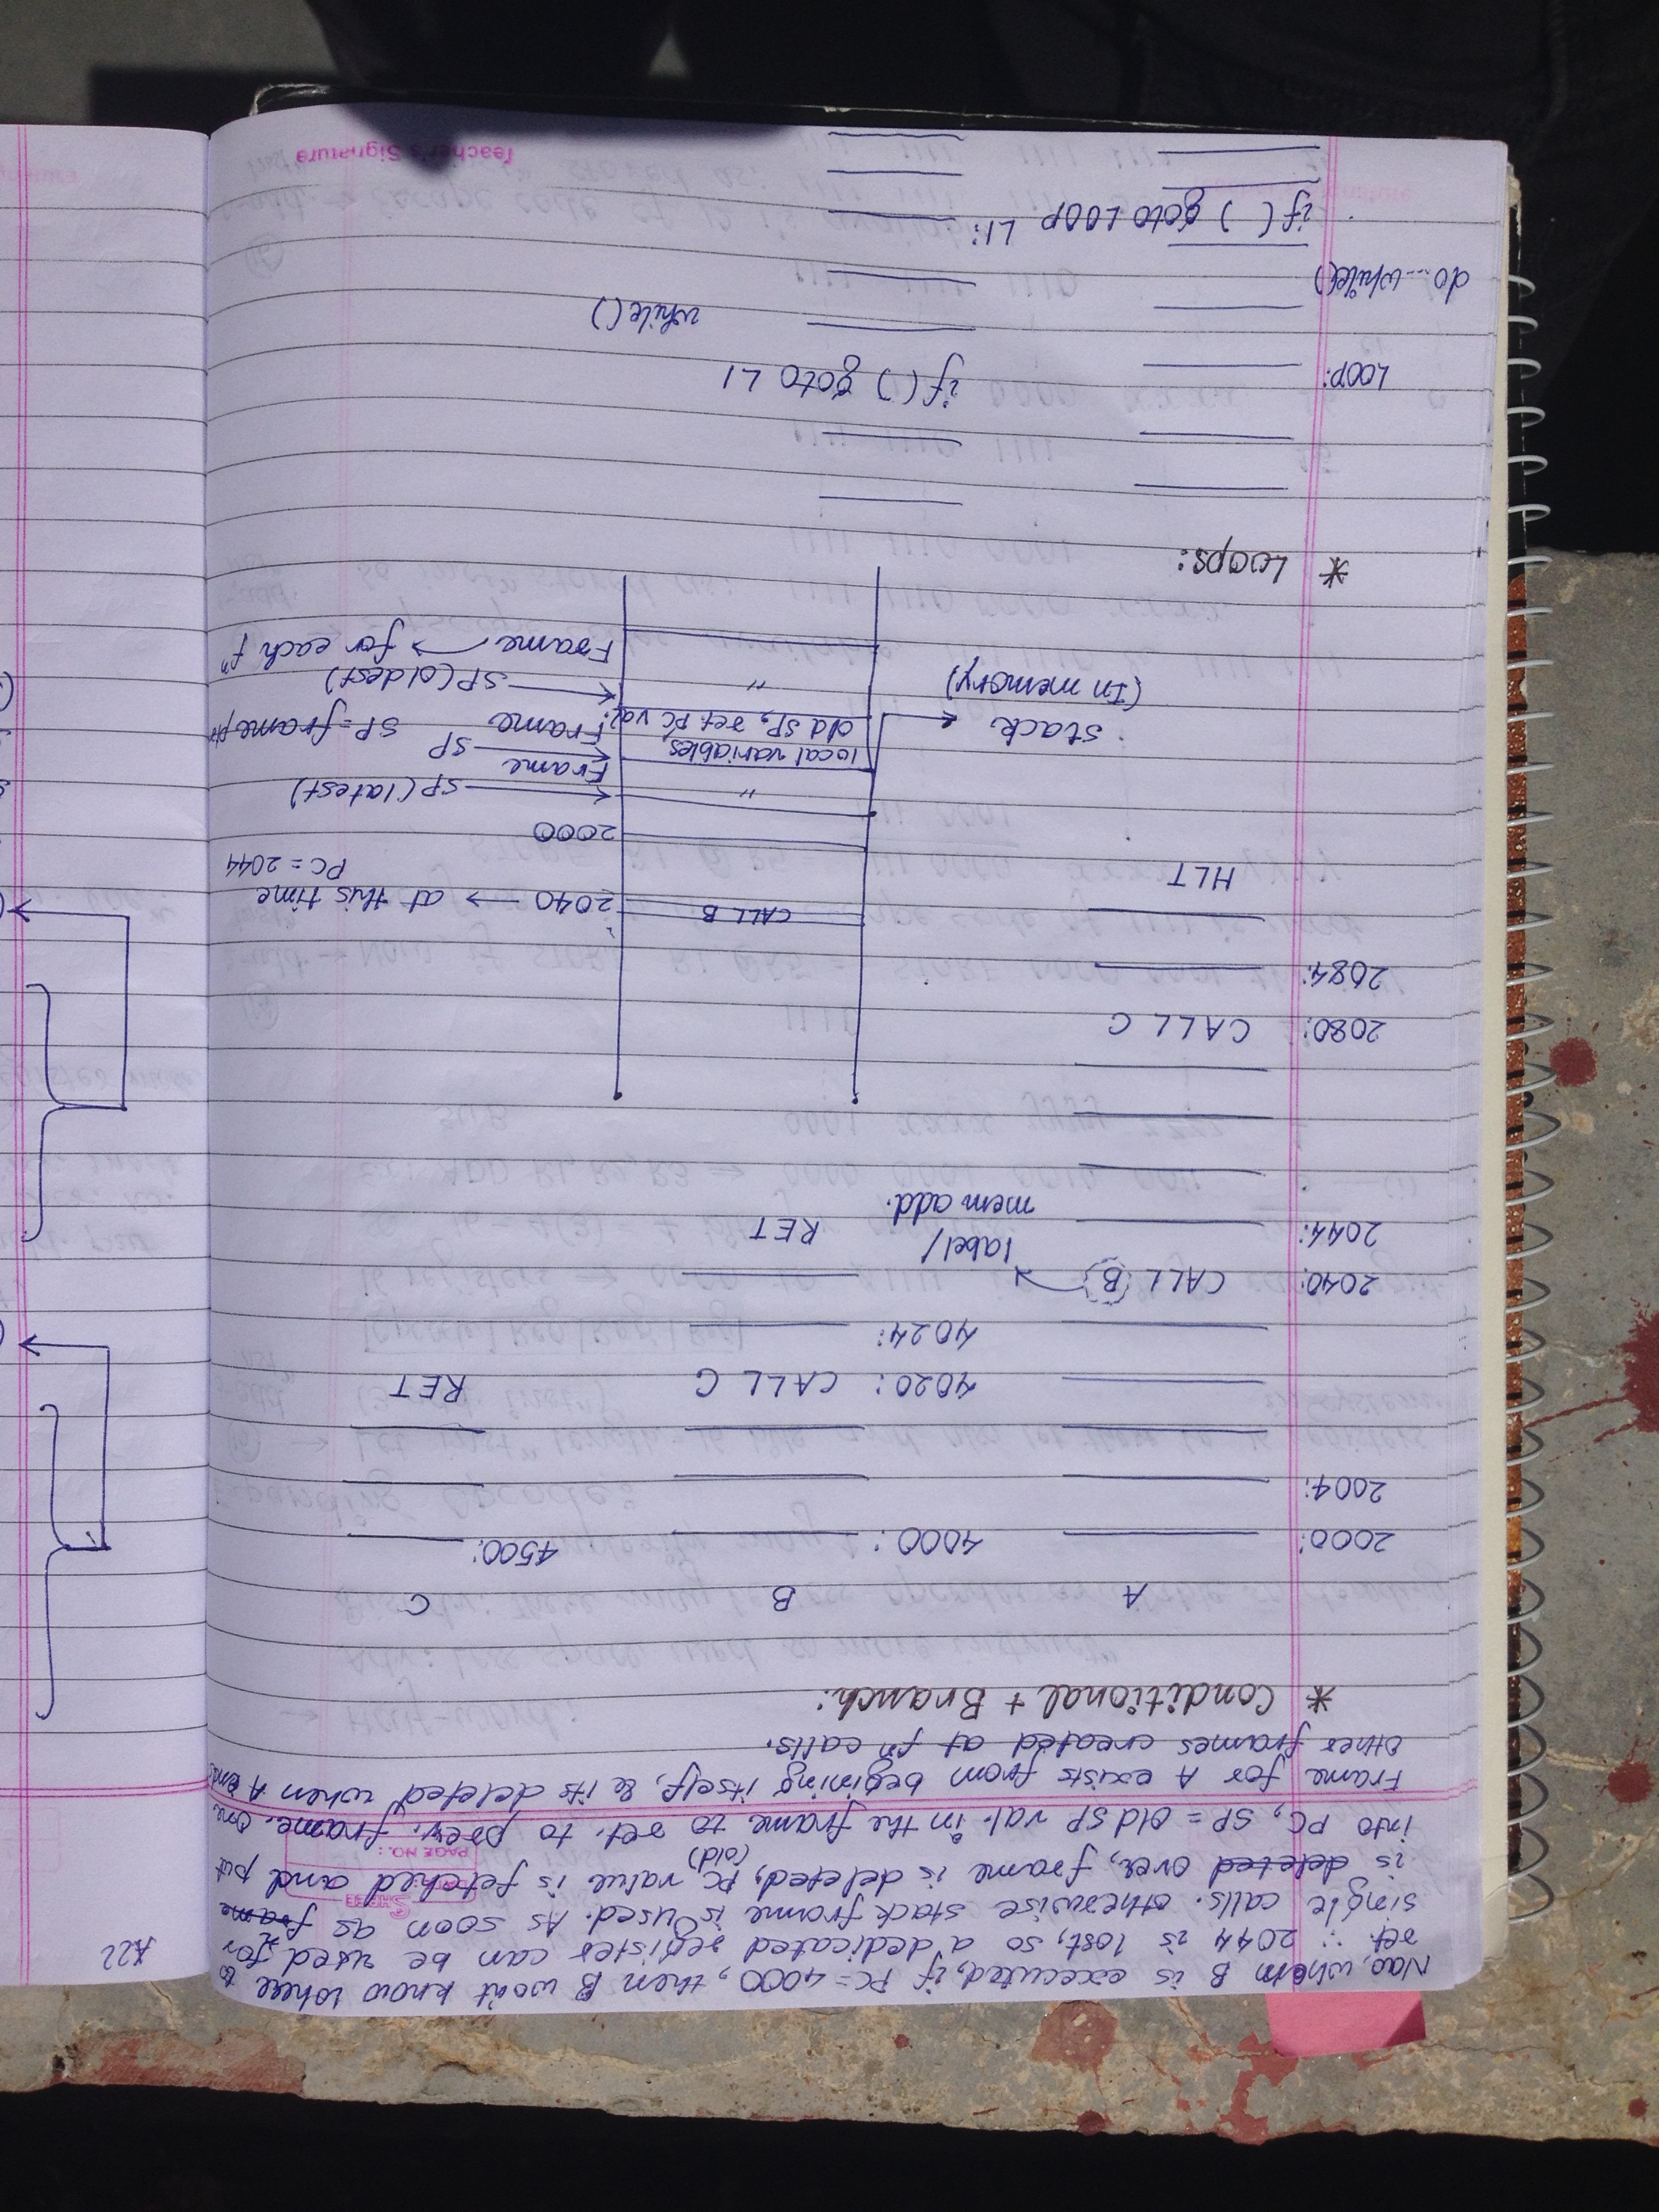 Nao, whem B is executed, if PC = 4000, then B won't know where to
ret. ∵ 2044 is lost, so a dedicated register can be used for
single calls. otherwise stack frame is used. As soon as frame fⁿ
is deleted over, frame is deleted, PC value is fetched and put
(old)
into PC, SP = old SP val. in the frame to ret. to prev. frame. One
Frame for A exists from begining itself, & its deleted when A ends
other frames created at fⁿ calls.
SHREE
PAGE NO.:
* Conditional + Branch:
A B C
2000: 4000: 4500:
2004:
4020: CALL C RET
4024:
2040: CALL B
label/
mem add.
2044: RET
2080: CALL C
2084:
CALL B 2040 → at this time
PC = 2044
HLT
2000
" SP (latest)
Frame
local variables, SP
old SP, ret. PC val. Frame SP = frame ptr
stack
(In memory)
" SP (oldest)
Frame → for each fⁿ
* Loops:
LOOP: if ( ) goto L1
while ( )
do...while()
if ( ) goto LOOP L1:
Teacher's Signature
A22